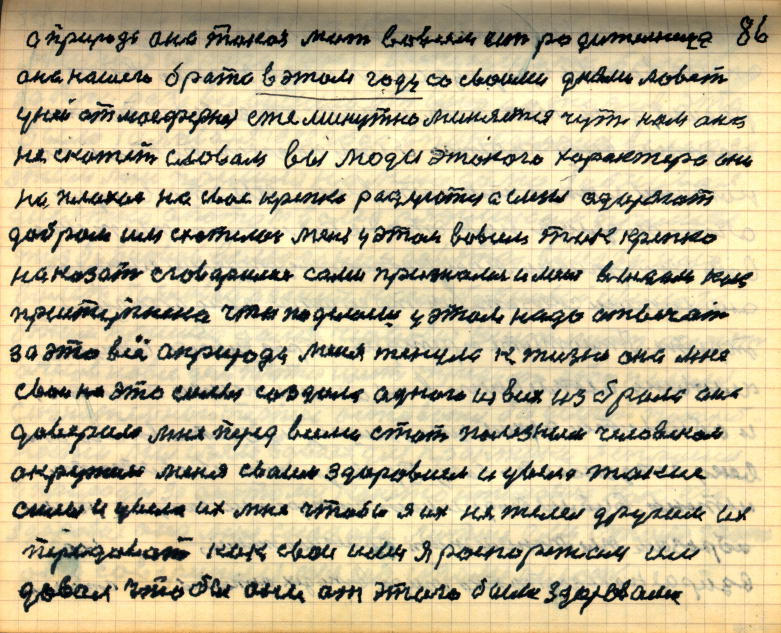 86
а природа она такая мать во всем им родительница
она нашего брата в этом году со своими днями ловит
у ней атмосферный ежеминутно меняется чуть нам она
не скажет словам вы люди этакого характера они
на плохое на свое крепко радуются а силы одаряют
добром им схотелось меня у этом вовсем так крепко
наказать сговорили сами признали и меня виноват как
приступника что поделаеш у этом надо отвечать
за это всё а природа меня тянула к жизни она мне
свои на это силы создала одного из всех избрала она
доверила мне перед всеми стать полезным человеком
окружила меня своим здоровием и увела такие
силы и увела их мне чтобы я их не жалел другим их
передават как свои ими я распоряжал им
давал чтобы они от этого были здоровыми